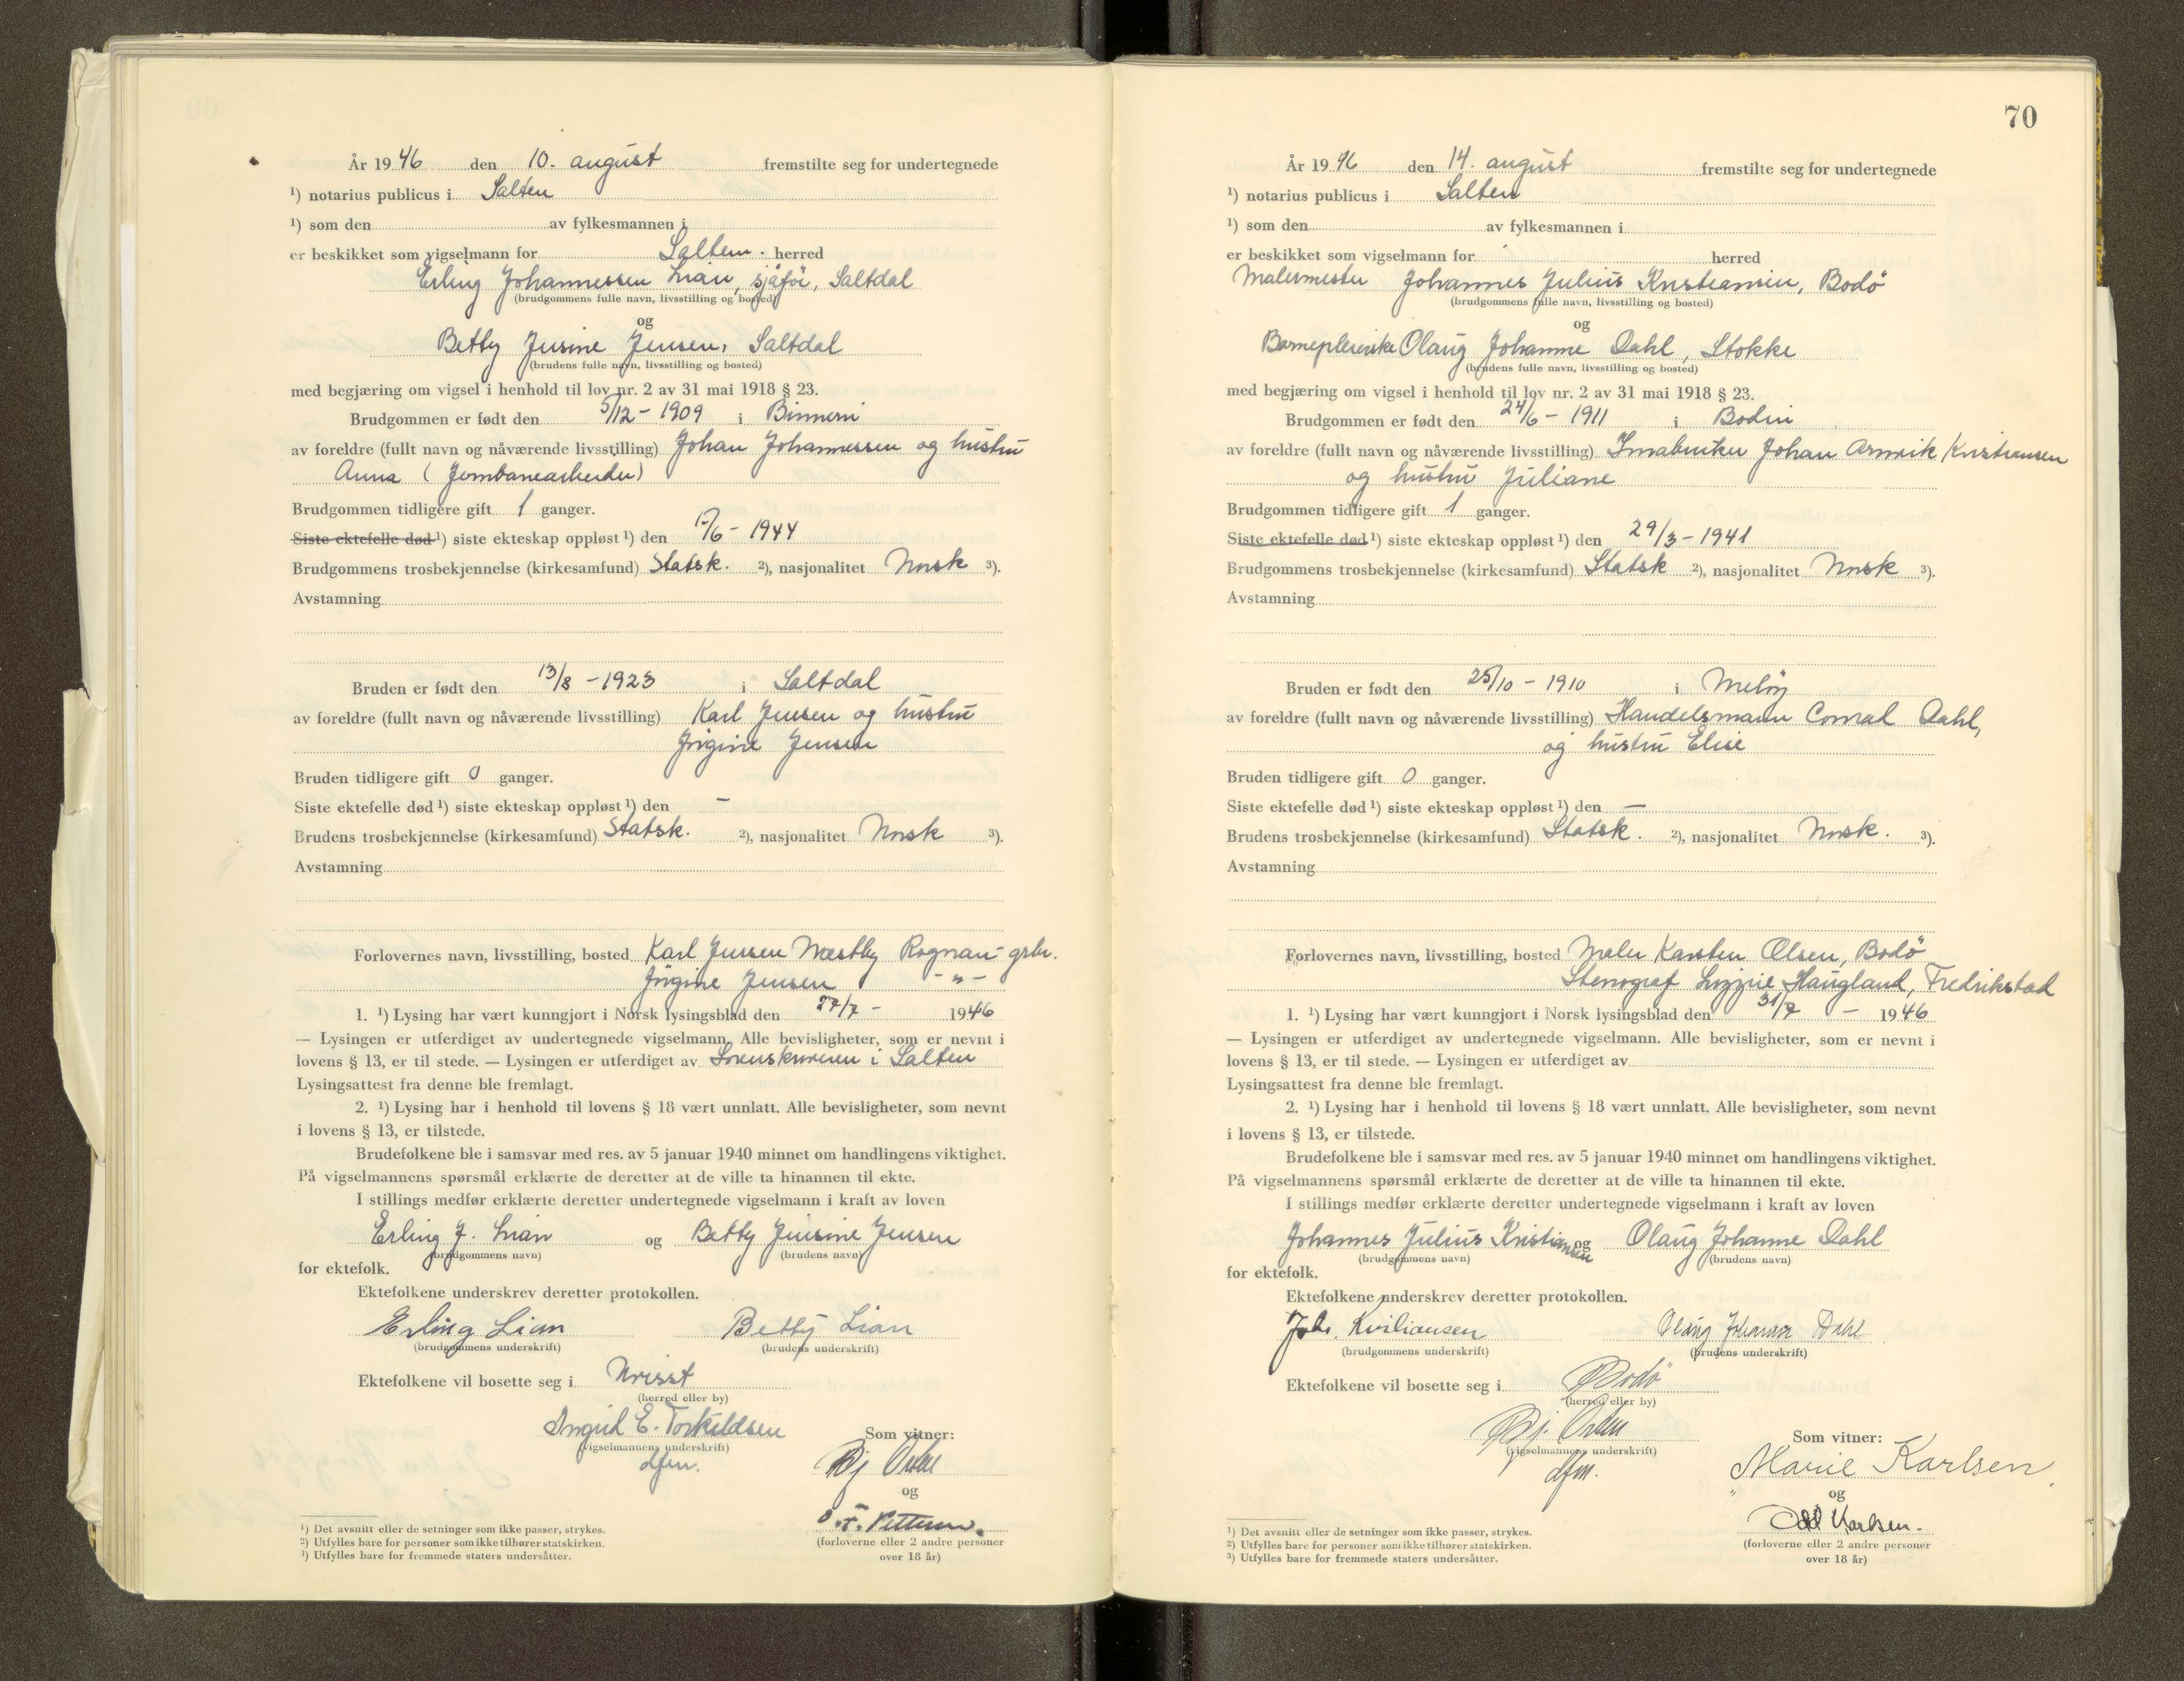 År 1946 den 10. august fremstilte seg for undertegnede
¹) notarius publicus i Salten
¹) som den av fylkesmannen i
er beskikket som vigselmann for Salten. herred
Erling Johannessen Lian, sjåfør, Saltdal
(brudgommens fulle navn, livsstilling og bosted)
og
Betty Jensine Jensen, Saltdal
(brudens fulle navn, livsstilling og bosted)
med begjæring om vigsel i henhold til lov nr. 2 av 31 mai 1918 § 23.
Brudgommen er født den 5/12 - 1909 i
av foreldre (fullt navn og nåværende livsstilling) Johan Johannessen og hustru
Anna (Jernbanearbeider)
Brudgommen tidligere gift 1 ganger.
Siste ektefelle død ¹) siste ekteskap oppløst ¹) den /6 - 1944
Brudgommens trosbekjennelse (kirkesamfund) Statsk. ²), nasjonalitet Norsk ³).
Avstamning
Bruden er født den 13/8 - 1923 i Saltdal
av foreldre (fullt navn og nåværende livsstilling) Karl Jensen og hustru
Jørgine Jensen
Bruden tidligere gift 0 ganger.
Siste ektefelle død ¹) siste ekteskap oppløst ¹) den -
Brudens trosbekjennelse (kirkesamfund) Statsk. ²), nasjonalitet Norsk ³).
Avstamning
Forlovernes navn, livsstilling, bosted Karl Jensen Næstby Rognan grbr.
Jørgine Jensen - " -
1. ¹) Lysing har vært kunngjort i Norsk lysingsblad den 27/7 - 1946
— Lysingen er utferdiget av undertegnede vigselmann. Alle bevisligheter, som er nevnt i
lovens § 13, er til stede. — Lysingen er utferdiget av Sorenskriveren i Salten
Lysingsattest fra denne ble fremlagt.
2. ¹) Lysing har i henhold til lovens § 18 vært unnlatt. Alle bevisligheter, som nevnt
i lovens § 13, er tilstede.
Brudefolkene ble i samsvar med res. av 5 januar 1940 minnet om handlingens viktighet.
På vigselmannens spørsmål erklærte de deretter at de ville ta hinannen til ekte.
I stillings medfør erklærte deretter undertegnede vigselmann i kraft av loven
Erling J. Lian og Betty Jensine Jensen
(brudgommens navn) (brudens navn)
for ektefolk.
Ektefolkene underskrev deretter protokollen.
Erling Lian Betty Lian
(brudgommens underskrift) (brudens underskrift)
Ektefolkene vil bosette seg i Uvisst
(herred eller by)
Ingrid E. Torkildsen
(vigselmannens underskrift)
dfm.
Som vitner:
Bj
og
O. F. Pettersen.
(forloverne eller 2 andre personer
over 18 år)
¹) Det avsnitt eller de setninger som ikke passer, strykes.
²) Utfylles bare for personer som ikke tilhører statskirken.
³) Utfylles bare for fremmede staters undersåtter.
70
År 1946 den 14. august fremstilte seg for undertegnede
¹) notarius publicus i Salten
¹) som den av fylkesmannen i
er beskikket som vigselmann for herred
Malermester Johannes Julius Kristiansen, Bodö
(brudgommens fulle navn, livsstilling og bosted)
og
Barnepleierske Olaug Johanne Dahl, Stokke
(brudens fulle navn, livsstilling og bosted)
med begjæring om vigsel i henhold til lov nr. 2 av 31 mai 1918 § 23.
Brudgommen er født den 24/6 - 1911 i Bodin
av foreldre (fullt navn og nåværende livsstilling) Småbruker Johan Kristiansen
og hustru Juliane
Brudgommen tidligere gift 1 ganger.
Siste ektefelle død ¹) siste ekteskap oppløst ¹) den 29/3 - 1941
Brudgommens trosbekjennelse (kirkesamfund) Statsk ²), nasjonalitet Norsk ³).
Avstamning
Bruden er født den 25/10 - 1910 i Meløy
av foreldre (fullt navn og nåværende livsstilling) Handelsmann Conrad Dahl,
og hustru Elise
Bruden tidligere gift 0 ganger.
Siste ektefelle død ¹) siste ekteskap oppløst ¹) den —
Brudens trosbekjennelse (kirkesamfund) Statsk. ²), nasjonalitet Norsk. ³).
Avstamning
Forlovernes navn, livsstilling, bosted Maler Karsten Olsen, Bodö
Stenograf Lizzie Haugland, Fredrikstad
1. ¹) Lysing har vært kunngjort i Norsk lysingsblad den 31/7 - 1946
— Lysingen er utferdiget av undertegnede vigselmann. Alle bevisligheter, som er nevnt i
lovens § 13, er til stede. — Lysingen er utferdiget av
Lysingsattest fra denne ble fremlagt.
2. ¹) Lysing har i henhold til lovens § 18 vært unnlatt. Alle bevisligheter, som nevnt
i lovens § 13, er tilstede.
Brudefolkene ble i samsvar med res. av 5 januar 1940 minnet om handlingens viktighet.
På vigselmannens spørsmål erklærte de deretter at de ville ta hinannen til ekte.
I stillings medfør erklærte deretter undertegnede vigselmann i kraft av loven
Johannes Julius Kristiansen og Olaug Johanne Dahl
(brudgommens navn) (brudens navn)
for ektefolk.
Ektefolkene underskrev deretter protokollen.
Johs. Kristiansen Olaug Johanne Dahl
(brudgommens underskrift) (brudens underskrift)
Ektefolkene vil bosette seg i Bodö
(herred eller by)
Bj.
(vigselmannens underskrift)
dfm.
Som vitner:
Marie Karlsen
og
Odd Karlsen.
(forloverne eller 2 andre personer
over 18 år)
¹) Det avsnitt eller de setninger som ikke passer, strykes.
²) Utfylles bare for personer som ikke tilhører statskirken.
³) Utfylles bare for fremmede staters undersåtter.